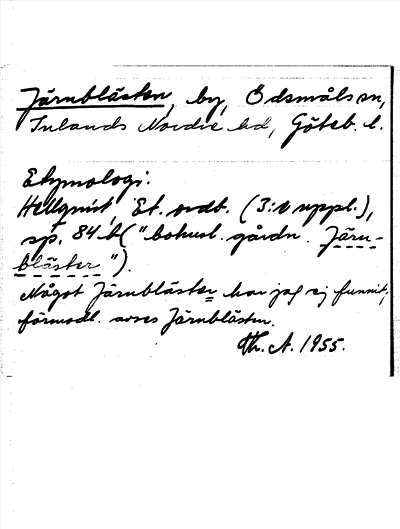 Järnblästen, by, Ödsmåls sn,
Inlands Nordre hd, Göteb. l.
Etymologi.
Hellquist, Et. ordb. (3:e uppl.),
sp. 84 b ("bohusl. gårdn. Järn-
bläster").
Något Järnbläster har jag ej funnit;
förmodl. avses Järnblästen.
Th. A. 1955.